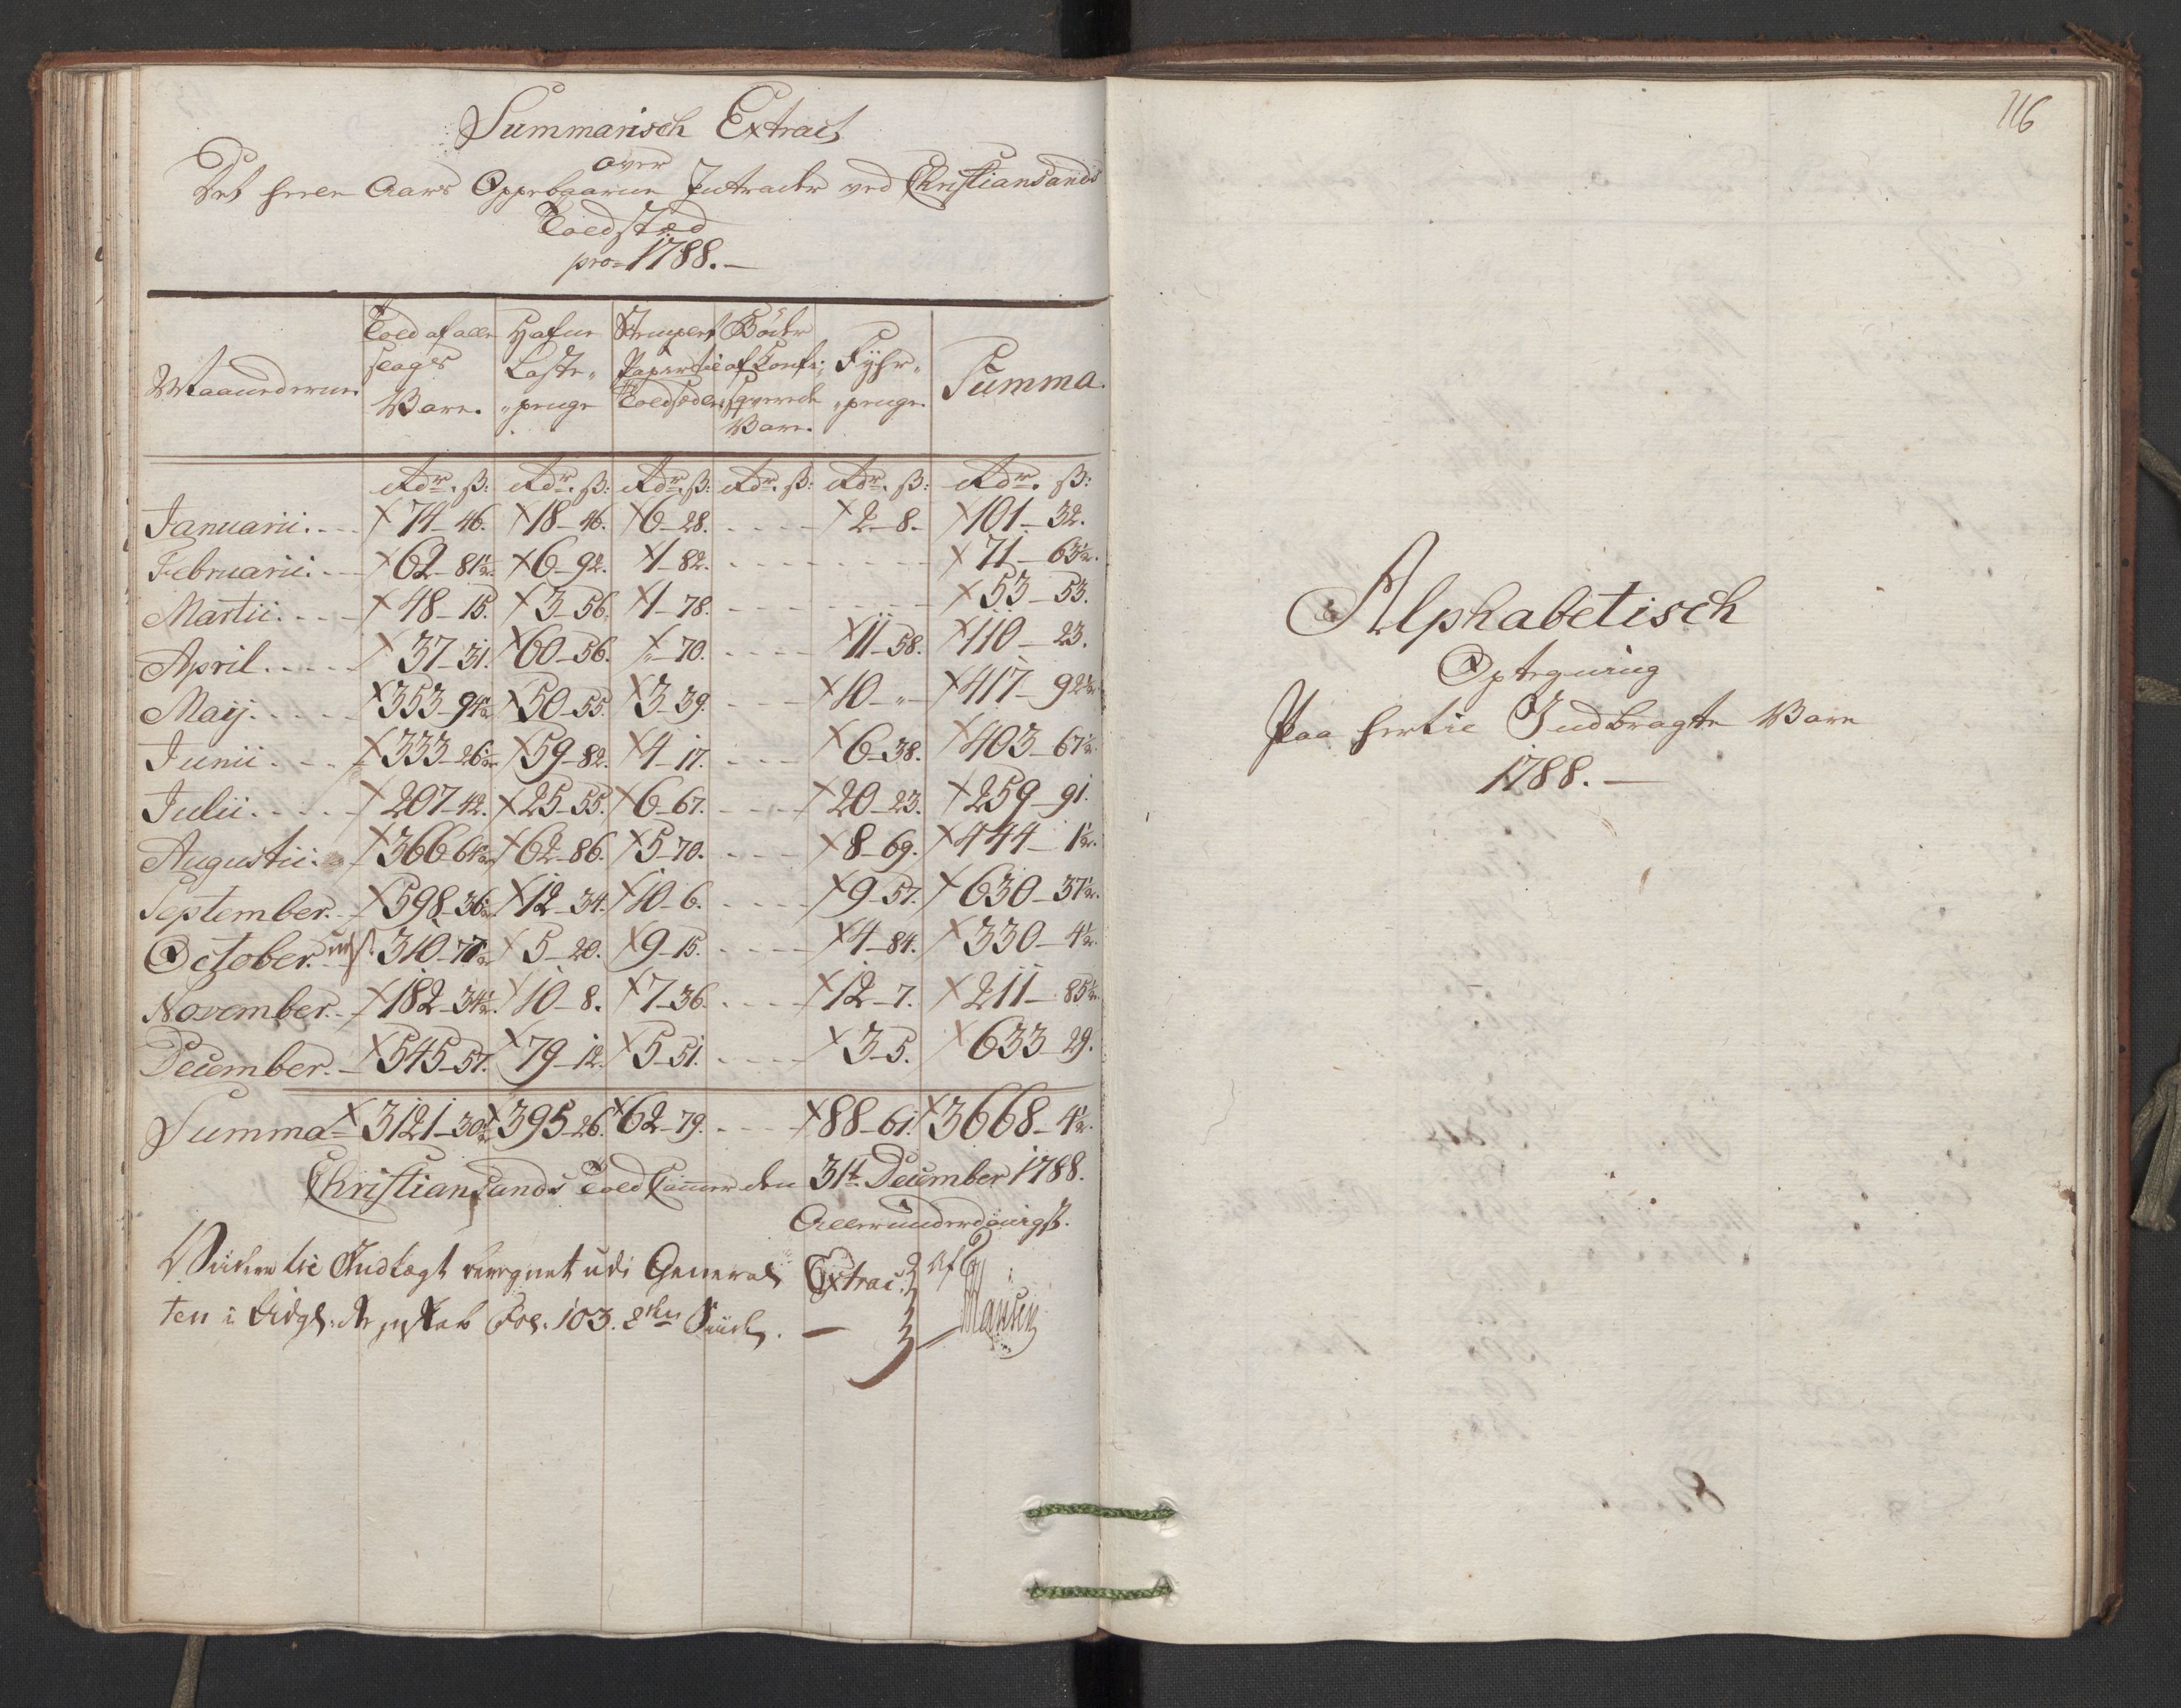 Summarisch Extract
over
Det heele Aars Oppebaarne Intrader ved Christiansands
Toldsted
pro 1788.
Maanederne. Told af alle slags Vare. Hafne Laste penge Stemplet Papir til Toldsedler Bøder af Confisqverede Vare. Fyhr penge. Summa.
Rdr. ß: Rdr. ß: Rdr. ß: Rdr. ß: Rdr. ß: Rdr. ß:
Januarii. 74-46. 18-46. 6-28. 2-8. 101-32.
Februarii. 62-81½. 6-92. 1-82. 71-63½.
Martii. 48-15. 3-56. 1-78. 53-53.
April. 37-31. 60-56. "-70. 11-58. 110-23.
Maij. 353-94½ 50-55. 3-39. 10-"- 417-92½
Junii. 333-26½ 59-82. 4-17. 6-38. 403-67½.
Julii. 207-42. 25-55. 6-67. 20-23. 259-91.
Augustii. 366-64½ 62-86. 5-70. 8-69. 444-1½.
September. 598-36½ 12-34. 10-6. 9-57. 630-37½.
October. 310-77½ 5-20. 9-15. 4-84. 330-4½.
November. 182-34½. 10-8. 7-36. 12-7. 211-85½.
December. 545-57. 79-12. 5-51. 3-5. 633-29.
Summa 3121-30½ 395-26. 62-79. 88-61. 3668-4½.
Christiansands Told Cammer den 31t. December 1788.
Allerunderdanigst.
til Indtægt beregnet udi General Extrac
ten i Regnskab Fol. 103. 2den Siide.
116
Alphabetisch
Optegning
Paa hertil Indbragte Vare
1788.